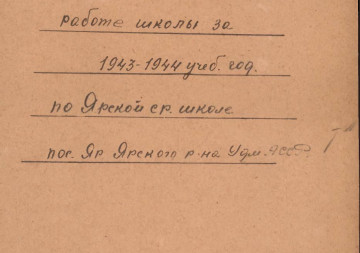 работе школы за
1943-1944 учеб. год.
по Ярской ср. школе
пос. Яр Ярского р-на Удм. АССР